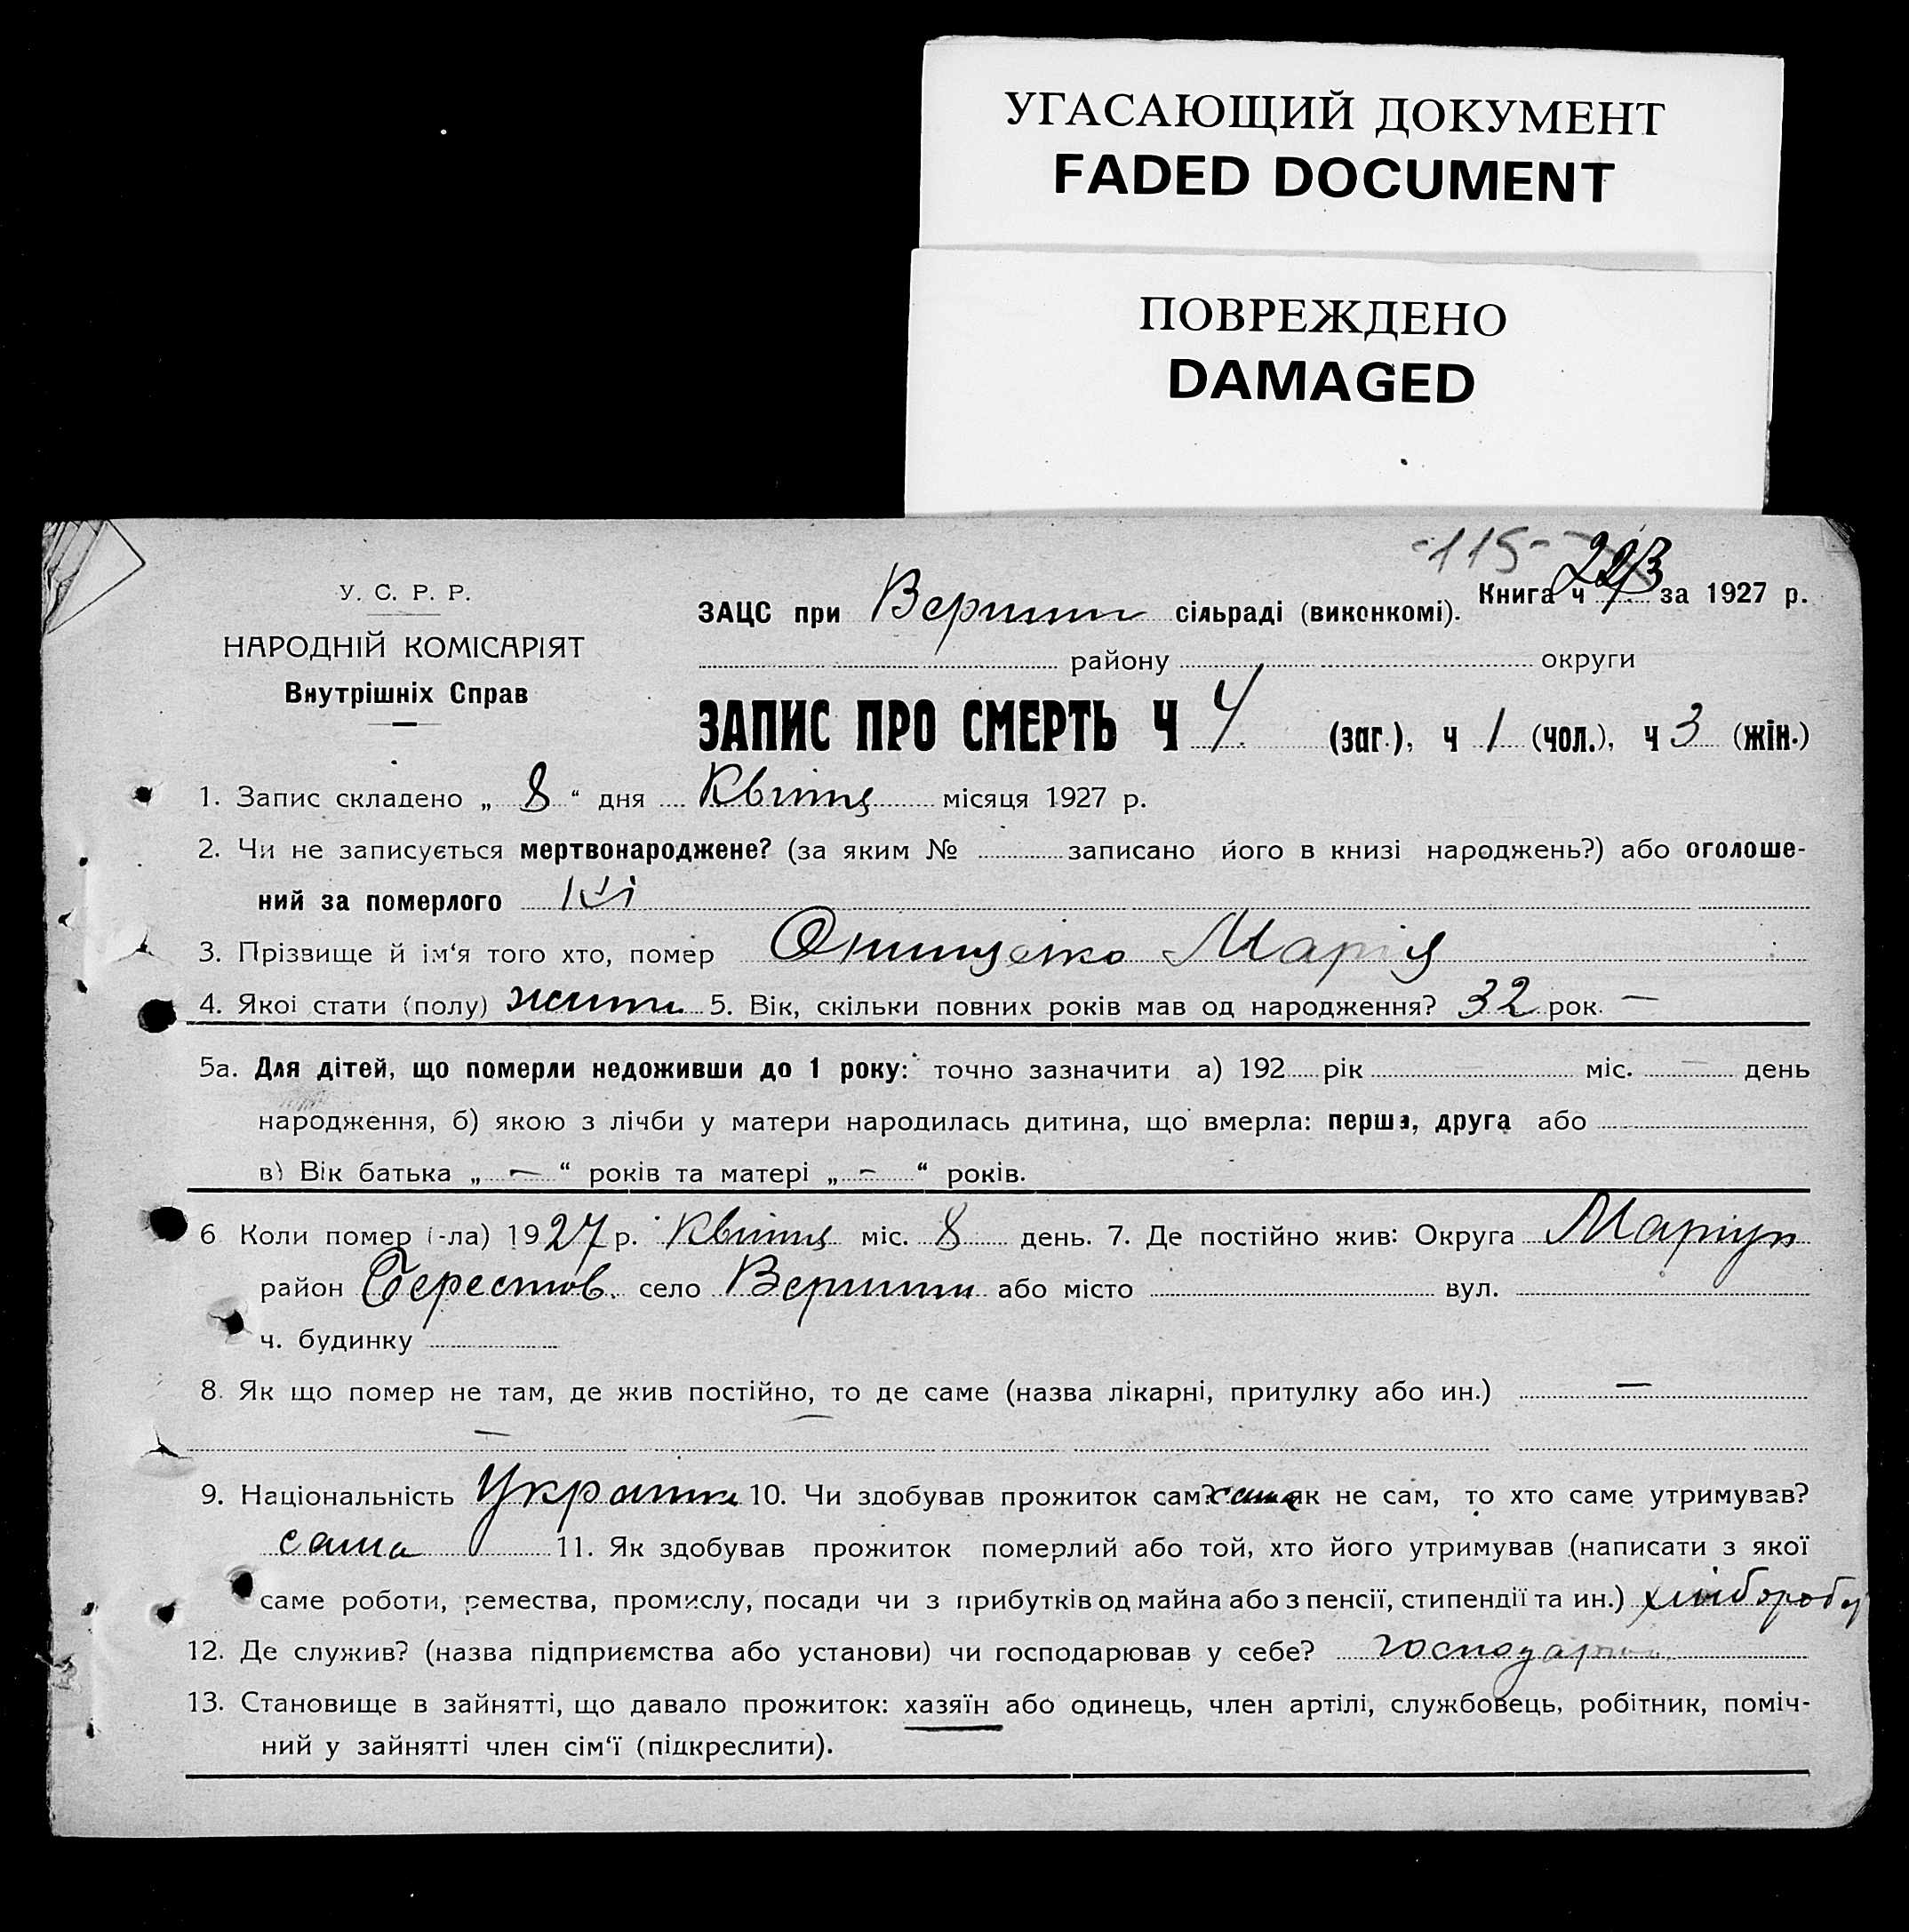 УГАСАЮЩИЙ ДОКУМЕНТ
FADED DOCUMENT
ПОВРЕЖДЕНО
DAMAGED
-115-
У. С. Р. Р.
НАРОДНІЙ КОМІСАРІЯТ
Внутрішніх Справ
Книга ч за 1927 р.
ЗАЦС при сільраді (виконкомі).
району округи
ЗАПИС ПРО СМЕРТЬ Ч 4 (заг.), ч 1 (чол.), ч 3 (жін.)
1. Запис складено „ 8 “ дня Квітня місяця 1927 р.
2. Чи не записується мертвонароджене? (за яким № записано його в книзі народжень?) або оголоше-
ний за померлого Ні
3. Прізвище й ім‘я того хто, помер Онищенко Марія
4. Якої стати (полу) 5. Вік, скільки повних років мав од народження? 32 рок. —
5а. Для дітей, що померли недоживши до 1 року: точно зазначити а) 192 рік міс. — день
народження, б) якою з лічби у матери народилась дитина, що вмерла: перша, друга або
в) Вік батька „ — “ років та матері „ — “ років.
6 Коли помер (-ла) 1927 р. Квітня міс. 8 день. 7. Де постійно жив: Округа Маріуп
район Берестов. село або місто вул.
ч. будинку
8. Як що помер не там, де жив постійно, то де саме (назва лікарні, притулку або ин.) —
—
9. Національність 10. Чи здобував прожиток сам? сама як не сам, то хто саме утримував?
сама 11. Як здобував прожиток померлий або той, хто його утримував (написати з якої
саме роботи, ремества, промислу, посади чи з прибутків од майна або з пенсії, стипендії та ин.)
12. Де служив? (назва підприємства або установи) чи господарював у себе?
13. Становище в зайнятті, що давало прожиток: хазяїн або одинець, член артілі, службовець, робітник, поміч-
ний у зайнятті член сім‘ї (підкреслити).